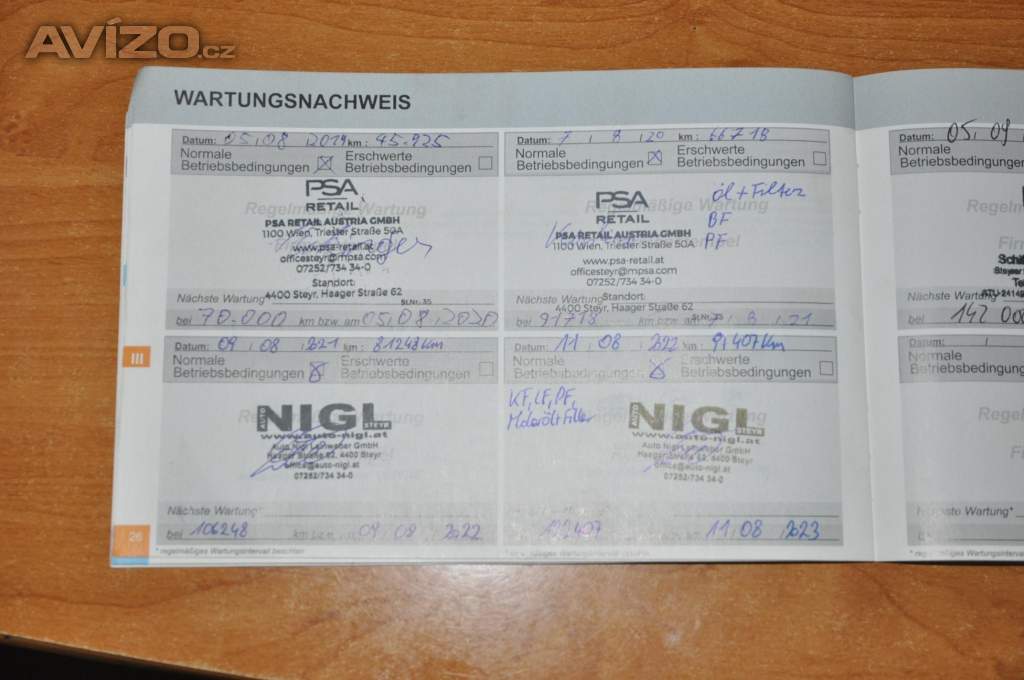 AVÍZO.cz
WARTUNGSNACHWEIS
Datum: 05 08 2019 km: 45.925
Normale Betriebsbedingungen
Erschwerte Betriebsbedingungen
Regelmäßige Wartung
PSA
RETAIL
PSA RETAIL AUSTRIA GMBH
1100 Wien, Triester Straße 50A
www.psa-retail.at
officesteyr@mpsa.com
07252/734 34-0
Standort:
4400 Steyr, Haager Straße 62
St.Nr. 35
Nächste Wartung
bei 70.000 km bzw. am 05 08 2020
Datum: 7 8 20 km: 66718
Normale Betriebsbedingungen
Erschwerte Betriebsbedingungen
Regelmäßige Wartung
PSA
RETAIL
PSA RETAIL AUSTRIA GMBH
1100 Wien, Triester Straße 50A
www.psa-retail.at
officesteyr@mpsa.com
07252/734 34-0
Standort:
4400 Steyr, Haager Straße 62
öl + Filter
BF
PF
Nächste Wartung
bei 91718 km bzw. am 7 8 21
Datum: 05 09
Normale
Betriebsbedingungen
Nächste Wartung
bei 142 000
Datum: 09 08 2021 km: 81248 km
Normale Betriebsbedingungen
Erschwerte Betriebsbedingungen
AUTO NIGL STEYR
www.auto-nigl.at
Auto Nigl Leinweber GmbH
Haager Straße 62, 4400 Steyr
office@auto-nigl.at
07252/734 34-0
Nächste Wartung*
bei 106248 km bzw. 09 08 2022
* regelmäßiges Wartungsintervall beachten
Datum: 11 08 2022 km: 97407 km
Normale Betriebsbedingungen
Erschwerte Betriebsbedingungen
KF, LF, PF,
Motoröl+Filter
AUTO NIGL STEYR
www.auto-nigl.at
Haager Straße 62, 4400 Steyr
office@auto-nigl.at
07252/734 34-0
Nächste Wartung*
122407 11 08 2023
Datum:
Normale
Betriebsbedingungen
Nächste Wartung*
bei
III
26